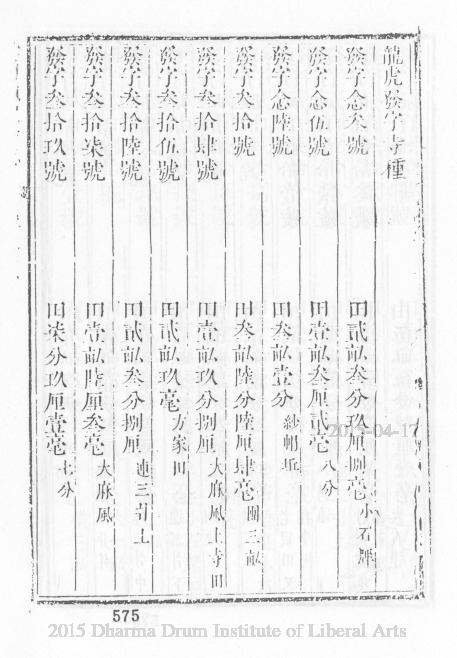 龍虎發字寺種
發字念叁號 田貳畝叁分玖厘捌亳 小石
發字念伍號 田壹畝叁厘貳亳 八分
發字念陸號 田叁畝壹分 紗帽坵
發字叁拾號 田叁畝陸分陸厘肆亳 團三畝
發字叁拾肆號 田壹畝玖分捌厘 大麻風上寺田
發字叁拾伍號 田貳畝玖亳 方家田
發字叁拾陸號 田貳畝叁分捌厘 連三坵上
發字叁拾柒號 田壹畝陸厘叁亳 大麻風
發字叁拾玖號 田柒分玖厘壹亳 七分
2015-04-17
575
2015 Dharma Drum Institute of Liberal Arts